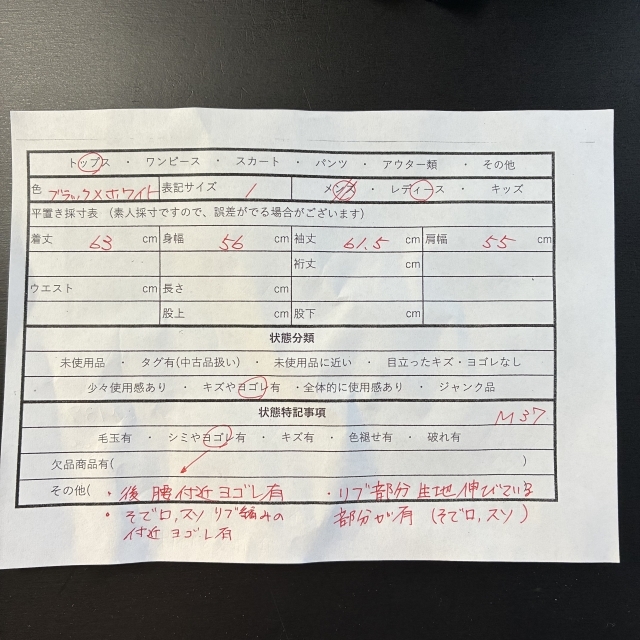 トップス ・ ワンピース ・ スカート ・ パンツ ・ アウター類 ・ その他
色 ブラック×ホワイト 表記サイズ 1 メンズ ・ レディース ・ キッズ
平置き採寸表 (素人採寸ですので、誤差がでる場合がございます)
着丈 63 cm 身幅 56 cm 袖丈 61.5 cm 肩幅 55 cm
裄丈 cm
ウエスト cm 長さ cm
股上 cm 股下 cm
状態分類
未使用品 ・ タグ有(中古品扱い) ・ 未使用品に近い ・ 目立ったキズ・ヨゴレなし
少々使用感あり ・ キズやヨゴレ有 ・全体的に使用感あり ・ ジャンク品
状態特記事項
M37
毛玉有 ・ シミやヨゴレ有 ・ キズ有 ・ 色褪せ有 ・ 破れ有
欠品商品有( )
その他( ・後 腰付近 ヨゴレ有 ・リブ部分 生地 伸びている
・そで口,スソ リブ編みの 部分が有 (そで口,スソ)
付近 ヨゴレ有